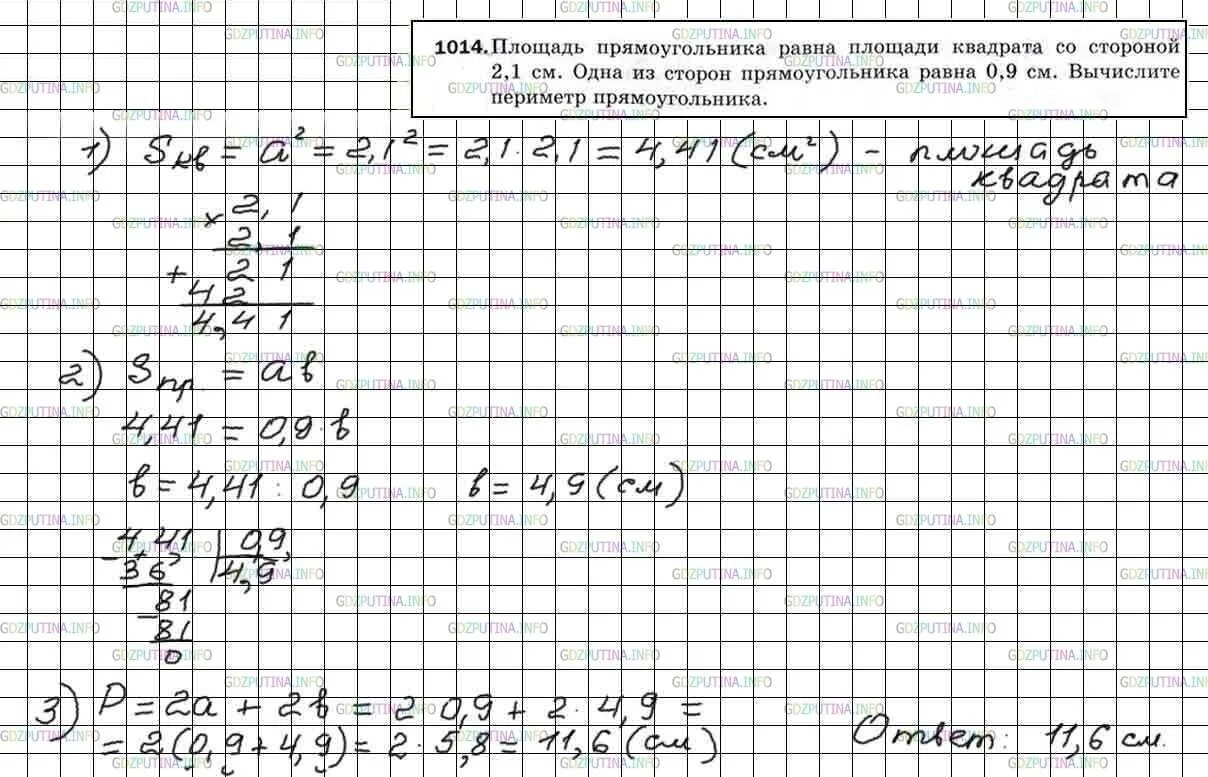 1014. Площадь прямоугольника равна площади квадрата со стороной
2,1 см. Одна из сторон прямоугольника равна 0,9 см. Вычислите
периметр прямоугольника.
1) Sкв = a² = 2,1² = 2,1 · 2,1 = 4,41 (см²) - площадь
квадрата
× 2,1
2,1
+ 21
42
4,41
2) Sпр. = ab
4,41 = 0,9 · b
b = 4,41 : 0,9 b = 4,9 (см)
- 4,4,1 | 0,9,
36 | 4,9
- 81
81
0
3) P = 2a + 2b = 2 0,9 + 2 · 4,9 =
= 2(0,9 + 4,9) = 2 · 5,8 = 11,6 (см)
Ответ: 11,6 см.
GDZPUTINA.INFO